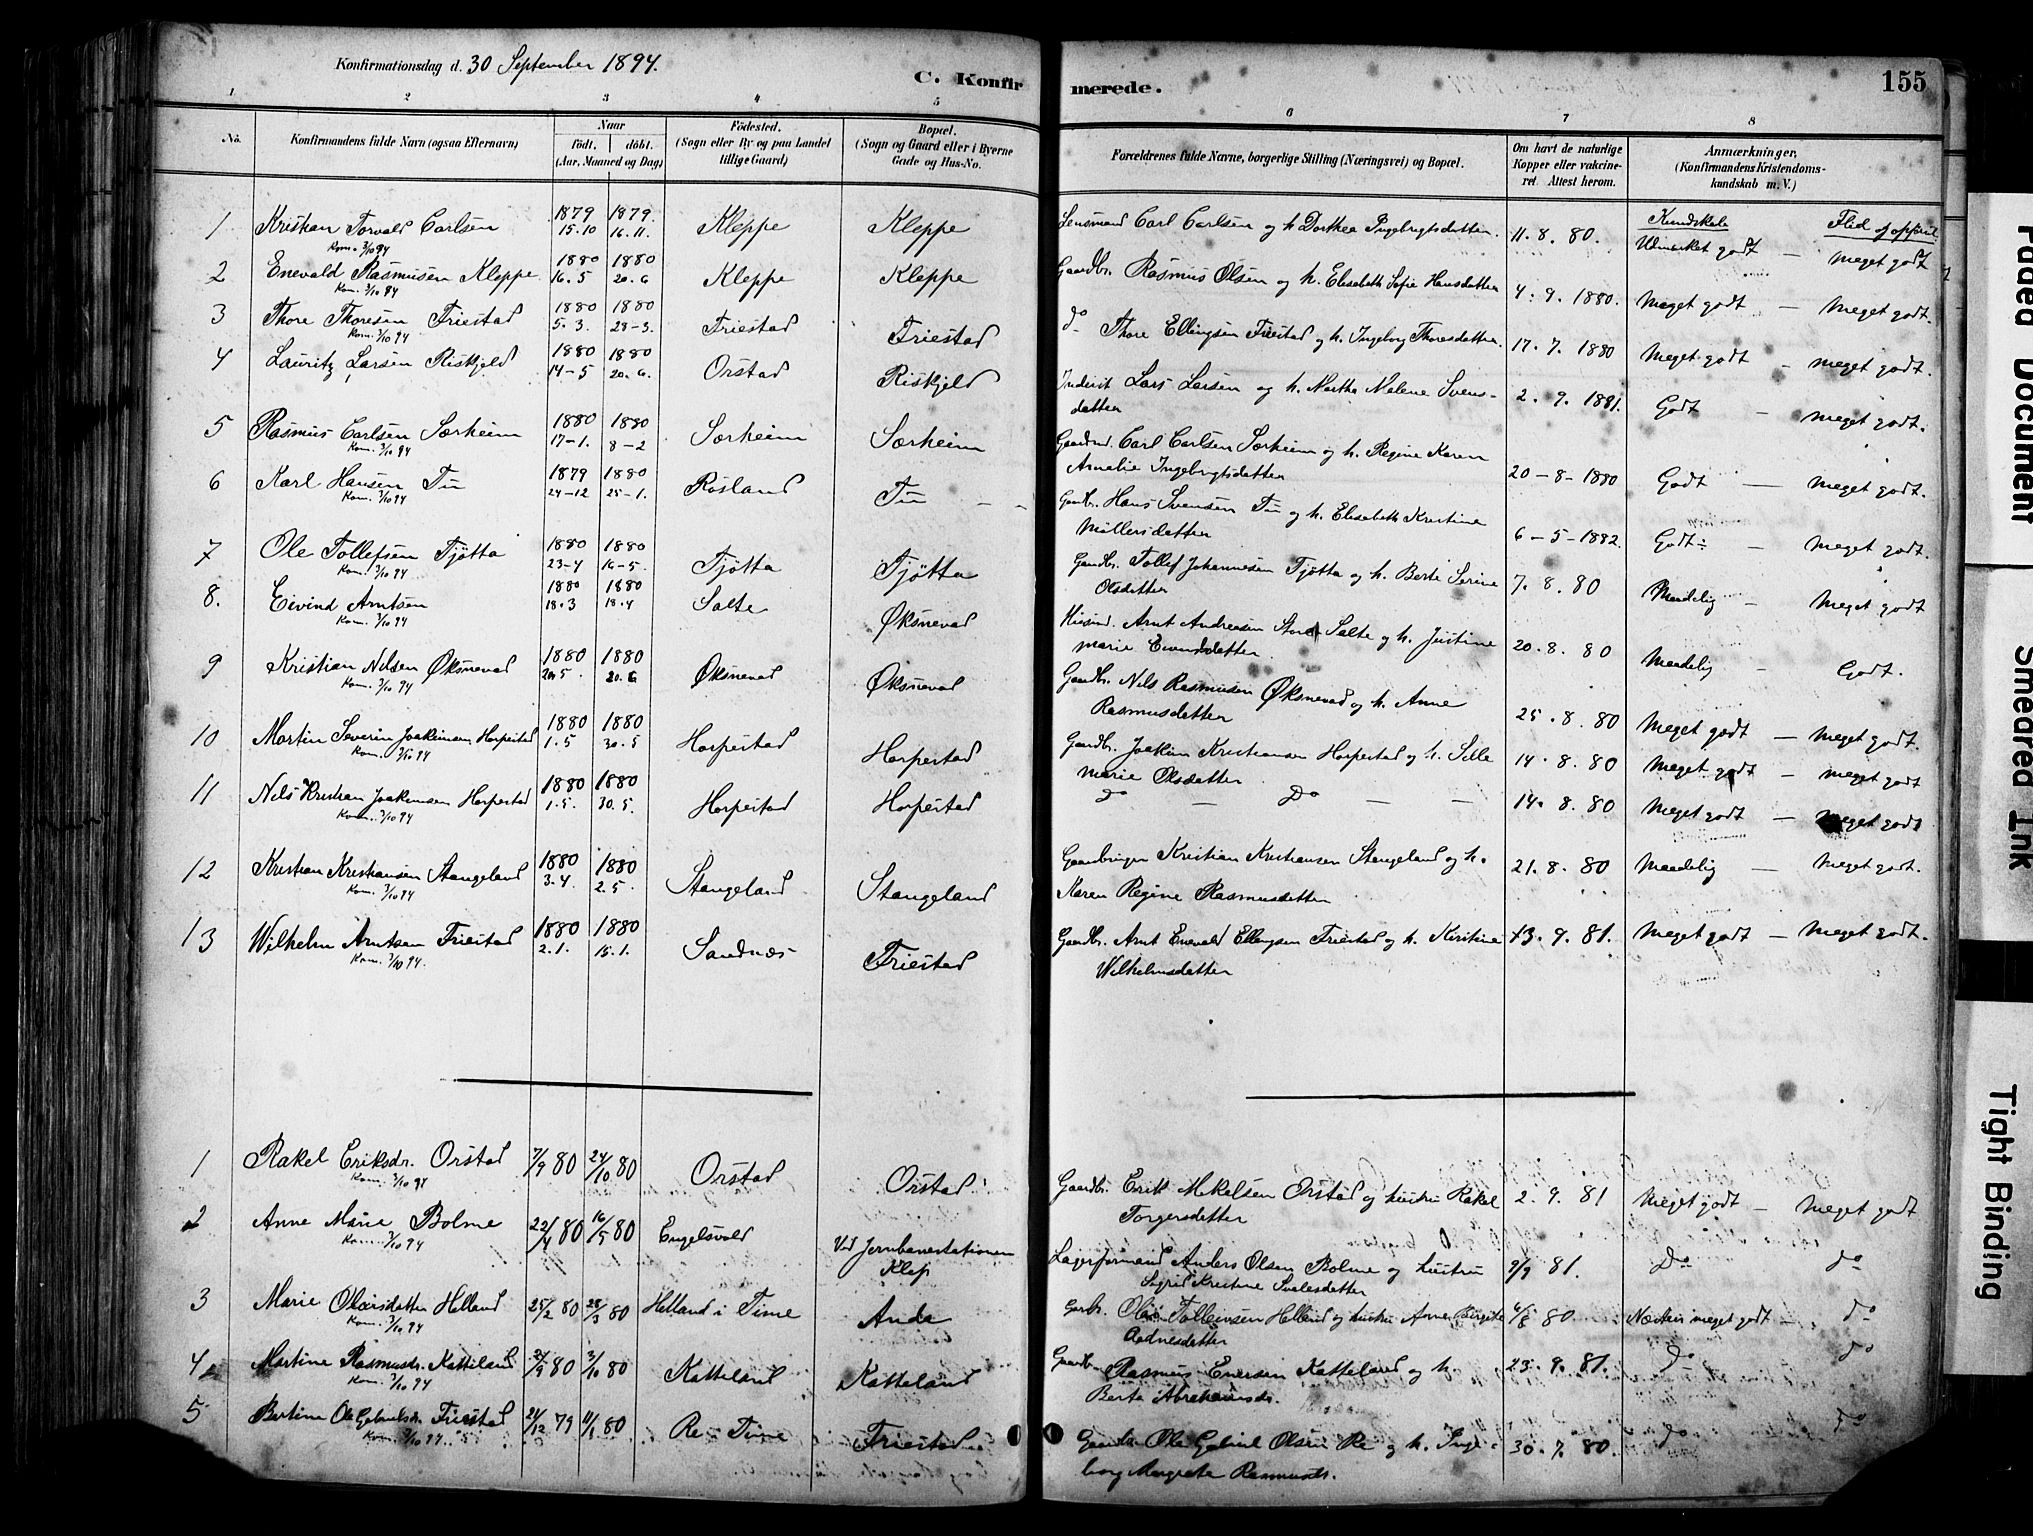 Konfirmationsdag d. 30 September 1894.
C. Konfirmerede.
155
1 2 3 4 5 6 7 8
No.
Konfirmandens fulde Navn (ogsaa Efternavn)
Naar
født. døbt.
(Aar, Maaned og Dag)
Fødested.
(Sogn eller By og paa Landet
tillige Gaard)
Bopæl.
(Sogn og Gaard eller i Byerne
Gade og Hus-No.
Forældrenes fulde Navne, borgerlige Stilling (Næringsvei) og Bopæl.
Om havt de naturlige
Kopper eller vakcine-
ret. Attest herom.
Anmærkninger,
(Konfirmandens Kristendoms-
kundskab m. V.)
Kundskab Flid og opførsl
1 Kristian Torvald Carlsen 1879 15.10 1879. 16.11. Kleppe Kleppe Lensmand Carl Carlsen og h. Dorthea Ingebrigtsdatter. 11. 8. 80. Udmærket godt — Meget godt
Kom. 7/10 94
2 Enevald Rasmusen Kleppe 1880 16.5 1880 20.6 Kleppe Kleppe Gaardbr. Rasmus Olsen og h. Elisabeth Sofie Hansdatter 4. 9. 1880. Meget godt — Meget godt.
Kom. 7/10 94
3 Thore Thoresen Friestad 1880 5.3. 1880 28-3. Friestad Friestad do Thore Ellingsen Friestad og h. Ingeborg Thoresdatter. 17. 7. 1880 Meget godt — Meget godt.
Kom. 7/10 94
4 Lauritz Larsen Riskjeld 1880 14-5 1880 20.6. Orstad Riskjeld Inderst Lars Larsen og h. Martha Malene Svens-
datter 2. 9. 1881. Godt — Meget godt.
5 Rasmus Carlsen Særheim 1880 17-1. 1880 8-2 Særheim Særheim Gaardmd. Carl Carlsen Særheim og h. Regine Karen
Amalie Ingebrigtsdatter 20-8-1880 Godt — Meget godt.
Kom. 7/10 94
6 Karl Hansen Tu 1879 24-12 1880 25-1. Røsland Tu Gaardbr. Hans Svensen Tu og h. Elisabeth Kristine
Møllersdatter 6-5-1882. Godt ÷ — Meget godt.
Kom. 7/10 94
7 Ole Tollefsen Tjøtta 1880 23-4 1880 16-5. Tjøtta Tjøtta Gaardbr. Tollef Johannesen Tjøtta og h. Berte Serine
Olsdatter 7. 8. 80 Maadelig — Meget godt
Kom. 7/10 94
8. Eivind Arntsen 1880 18.3 1880 18.4 Salte Øksnevad Husmd. Arnt Andreasen Store Salte og h. Justine
Marie Eivindsdatter. 20. 8. 80 Maadelig — Godt.
Kom. 7/10 94
9 Kristian Nilsen Øksnevad 1880 20.5 1880 20.6 Øksnevad Øksnevad Gaardbr. Nils Rasmusen Øksnevad og h. Anne
Rasmusdatter 25. 8. 80 Meget godt — Meget godt.
Kom. 7/10 94
10 Martin Severin Joakimsen Horpestad 1880 1.5 1880 30.5 Horpestad Horpestad Gaardbr. Joakim Kristiansen Horpestad og h. Sille
Marie Olsdatter 14. 8. 80 Meget godt — Meget godt
Kom. 7/10 94
11 Nils Kristian Joakimsen Horpestad 1880 1.5. 1880 30.5. Horpestad Horpestad do — Do — — 14. 8. 80 Meget godt — Meget godt
Kom. 7/10 94
12 Kristian Kristiansen Stangeland 1880 3.4. 1880 2.5. Stangeland Stangeland Gaardbruger Kristian Kristiansen Stangeland og h.
Karen Regine Rasmusdatter 21. 8. 80 Maadelig — Meget godt.
Kom. 7/10 94
13 Wilhelm Arntsen Friestad 1880 2.1. 1880 15.1. Sandnæs Friestad Gaardbr. Arnt Enevald Ellingsen Friestad og h. Kirstine
Wilhelmsdatter 13. 9. 81. Meget godt — Meget godt.
Kom. 7/10 94.
1 Rakel Eriksdr. Orstad 7/9 80 24/10 80 Orstad Orstad Gaardbr. Erik Mikelsen Orstad og hustru Rakel
Torgersdatter 2. 9. 81 Meget godt — Meget godt
Kom. 7/10 94
2 Anne Marie Bolme 22/4 80 16/5 80 Engelsvold Ved Jernbanestationen
Klep Lagerformand Anders Olsen Bolme og hustru
Sigrid Kristine Svalesdatter 9/9 81. Do do
Kom. 7/10 94
3 Marie Olaisdatter Helland 25/2 80 28/3 80 Helland i Time Anda Gaardbr. Olai Tolleivsen Helland og hustru Anne Birgite
Aadnesdatter 6/8 80. Næsten meget godt — do
Kom. 7/10 94
4 Martine Rasmusdr. Katteland 2/9 80 3/10 80 Katteland Katteland Gaardbr. Rasmus Enersen Katteland og h.
Berte Abrahamsdr. 23. 9. 81. Do do
Kom. 7/10 94
5 Bertine Ole Gabrielsdr. Friestad 21/12 79 11/1 80 Re Time Friestad Gaardbr. Ole Gabriel Olsen Re og h. Inge-
borg Margrete Rasmusdr. 30. 7. 80. do do
Kom. 7/10 94
Faded Document
Smeared Ink
Tight Binding